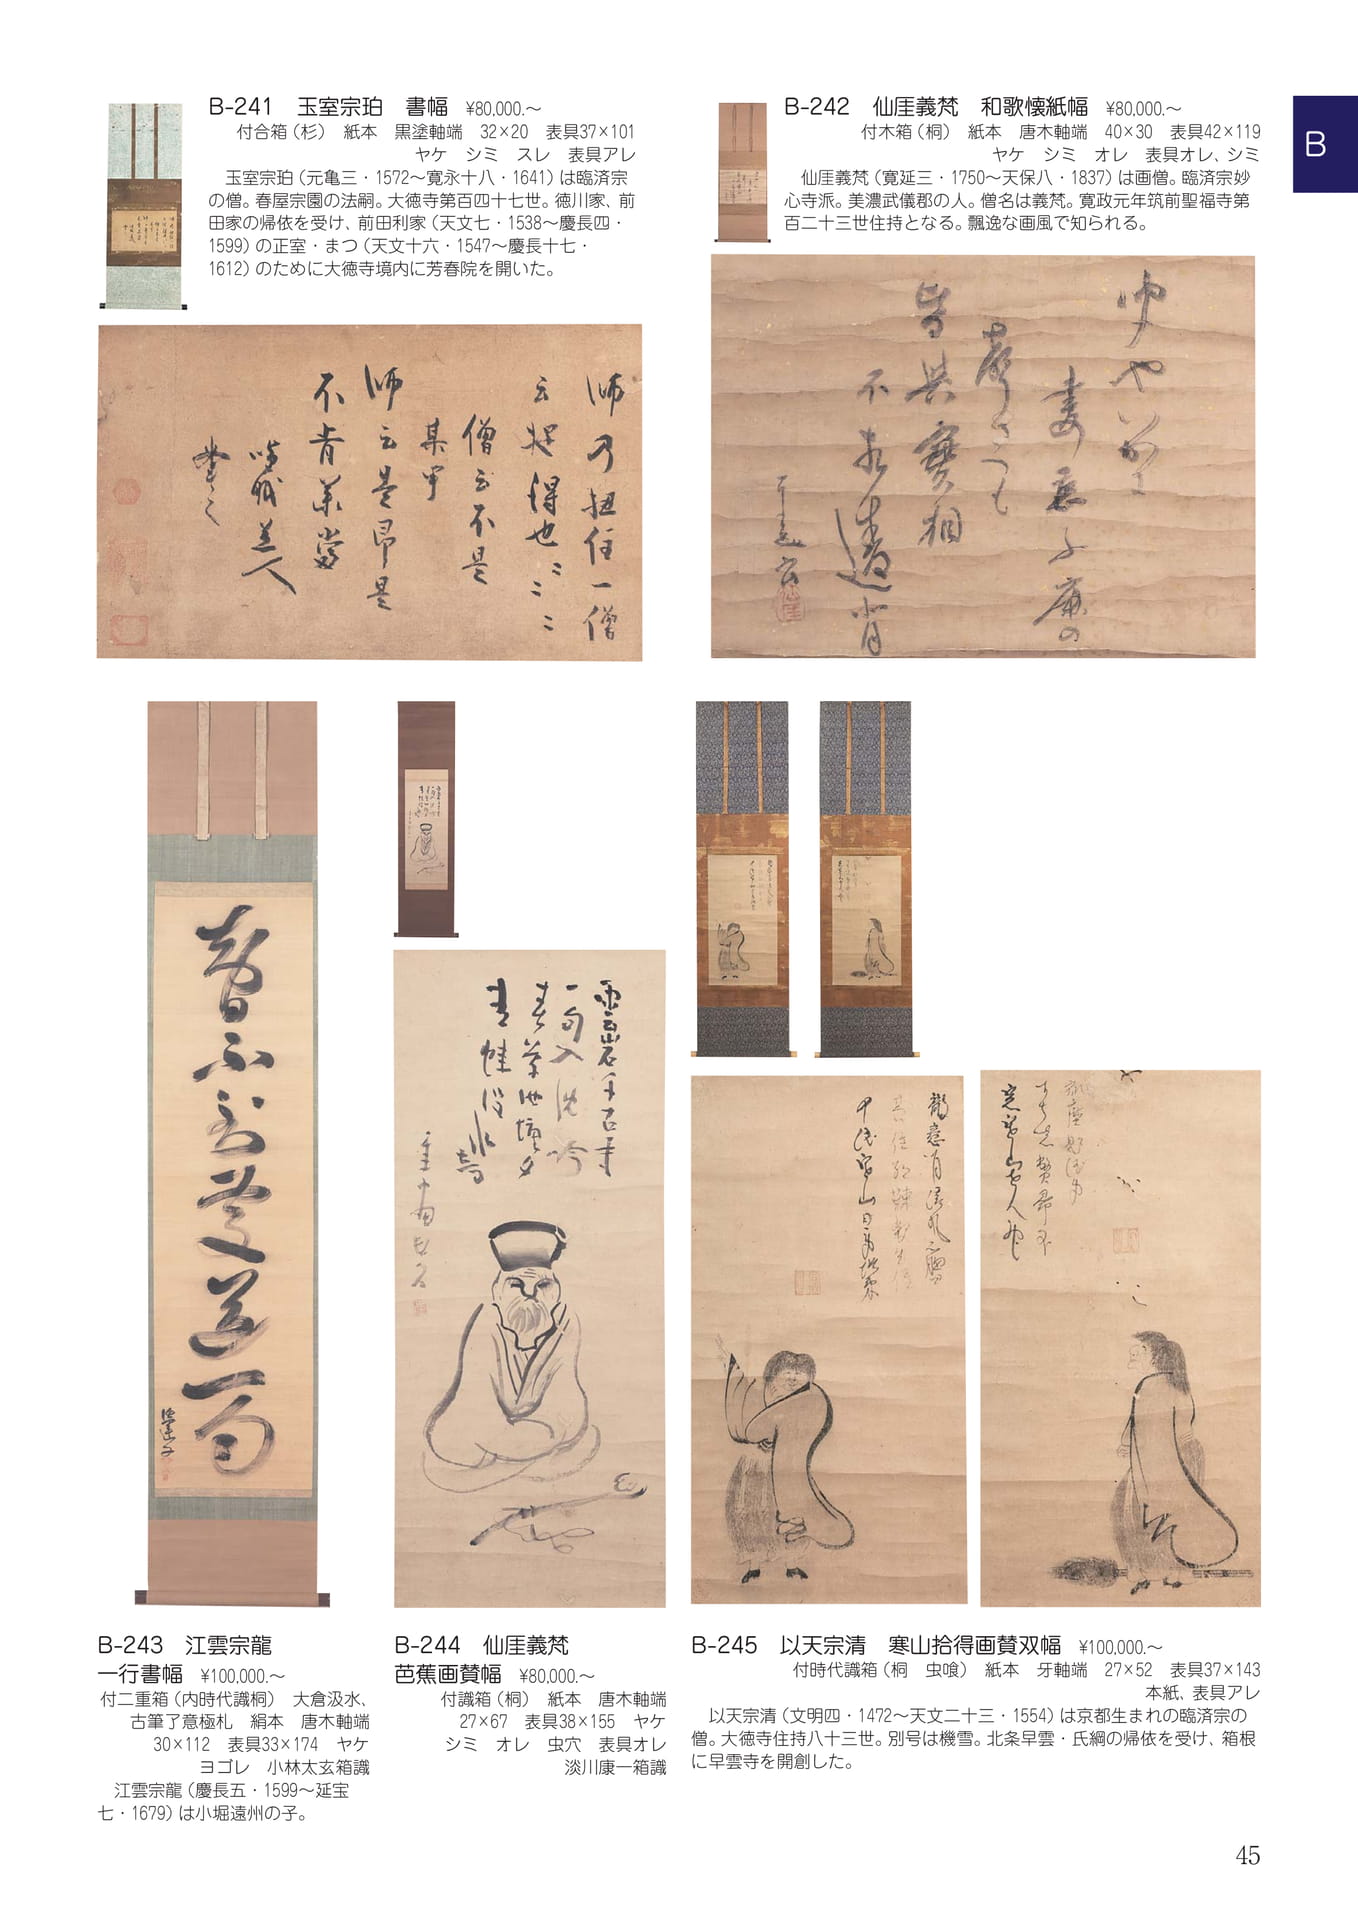 B
B-241　玉室宗珀　書幅　¥80,000.〜
付合箱（杉）　紙本　黒塗軸端　32×20　表具37×101
ヤケ　シミ　スレ　表具アレ
玉室宗珀（元亀三・1572〜寛永十八・1641）は臨済宗
の僧。春屋宗園の法嗣。大徳寺第百四十七世。徳川家、前
田家の帰依を受け、前田利家（天文七・1538〜慶長四・
1599）の正室・まつ（天文十六・1547〜慶長十七・
1612）のために大徳寺境内に芳春院を開いた。
師乃扭住一僧
云捉得也〻〻〻
僧云不是
某甲
師云是即是
不肯承当
B-242　仙厓義梵　和歌懐紙幅　¥80,000.〜
付木箱（桐）　紙本　唐木軸端　40×30　表具42×119
ヤケ　シミ　オレ　表具オレ、シミ
仙厓義梵（寛延三・1750〜天保八・1837）は画僧。臨済宗妙
心寺派。美濃武儀郡の人。僧名は義梵。寛政元年筑前聖福寺第
百二十三世住持となる。飄逸な画風で知られる。
皆與實相
B-243　江雲宗龍
一行書幅　¥100,000.〜
付二重箱（内時代識桐）　大倉汲水、
古筆了意極札　絹本　唐木軸端
30×112　表具33×174　ヤケ
ヨゴレ　小林太玄箱識
江雲宗龍（慶長五・1599〜延宝
七・1679）は小堀遠州の子。
B-244　仙厓義梵
芭蕉画賛幅　¥80,000.〜
付識箱（桐）　紙本　唐木軸端
27×67　表具38×155　ヤケ
シミ　オレ　虫穴　表具オレ
淡川康一箱識
B-245　以天宗清　寒山拾得画賛双幅　¥100,000.〜
付時代識箱（桐　虫喰）　紙本　牙軸端　27×52　表具37×143
本紙、表具アレ
以天宗清（文明四・1472〜天文二十三・1554）は京都生まれの臨済宗の
僧。大徳寺住持八十三世。別号は機雪。北条早雲・氏綱の帰依を受け、箱根
に早雲寺を開創した。
45